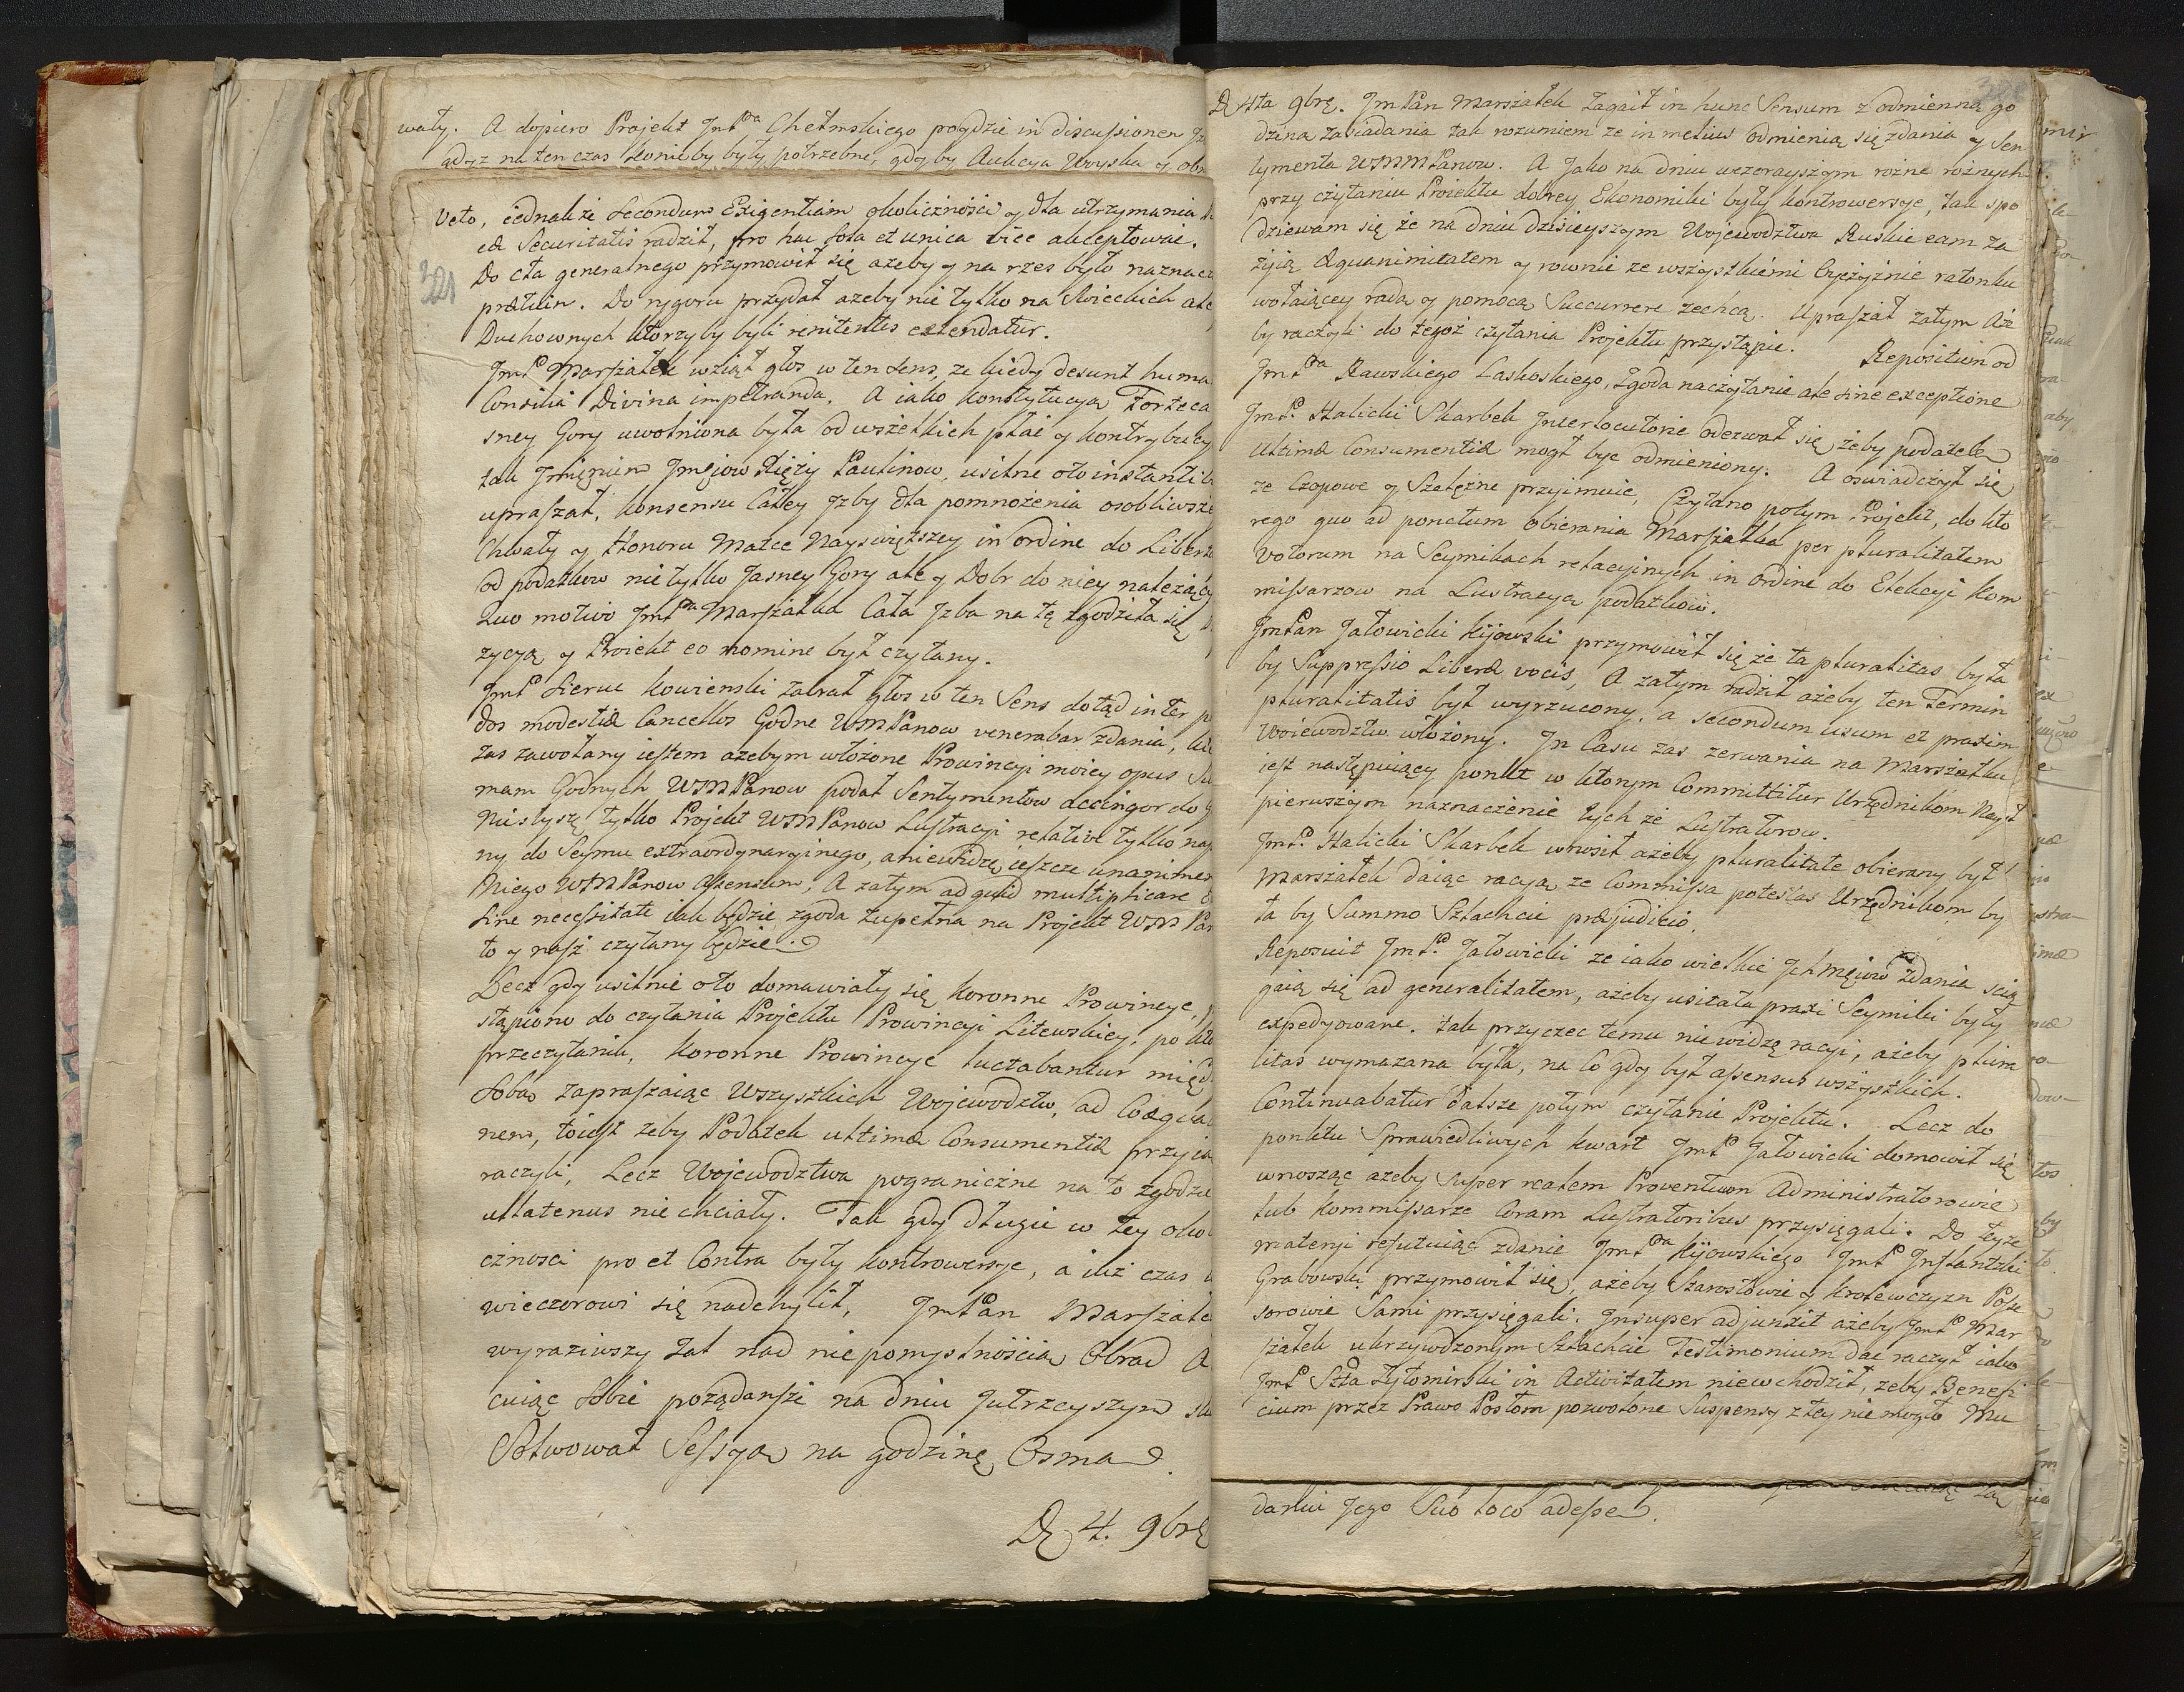 wały. A dopiero Projekt JmPna Chełmskiego poydzie in discussionem
gdyż na ten czas konieby były potrzebne, gdy by Aukcya Woyska y
321
Veto, iednakże secondum Exigentiam okoliczności y dla utrzymania
eae Securitatis radził, pro hac sola et unica vice akceptować.
Do cła generalnego przymowił się ażeby y na rzes było
pretium. Do rygoru przydał ażeby nie tylko na Swieckich ale
Duchownych ktorzy by byli renitentes extendatur.
JmP Marszałek wziął głos w ten sens, że kiedy desunt huma
Consilia Divina impetranda. A iako Konstytucya Forteca
sney Gory uwolniona była od wszelkich płac y kontrybucy
tak Jmięniem Jmęiow Xięży Paulinow, usilne oto instantie
upraszał, konsensu Całey Jzby dla pomnożenia osobliwsze
Chwały y Honoru Matce Nayswiętszey in ordine do Liber
od podatkow nie tylko Jasney Gory ale y Dobr do niey należący
Quo motivo JmPna Marszałka Cała Jzba na tę zgodziła się
zycyą y Proiekt eo nomine był czytany.
JmP Sieruc Kowienski zabrał głos w ten Sens dotąd inter
dos modestiae Cancellos Godne WMMPanow venerabar zdania,
zas zawołany iestem ażebym włożone Prowincyi moiey opus
mam Godnych WMMPanow podał Sentymentow accingor do
Niesłyszę tylko Projekt WMMPanow Lustracyi relative tylko
ny do Seymu extraordynaryinego, a niewidzę ieszcze unanimem
Niego WMMPanow assensum; A zatym ad quid multiplicare
sine necessitate iak będzie zgoda zupełna na Projekt WMM Pan
to y nasz czytany będzie.
Lecz gdy usilnie oto domawiały się Koronne Prowincye,
stąpiono do czytania Projektu Prowincyi Litewskiey, po
przeczytaniu, Koronne Prowincye luctabantur międ
Sobą zapraszaiąc Wszystkich Wojewodztw, ad Coaequa
nem, toiest zeby Podatek ultimae Consumentiae przyią
raczyli, Lecz Wojewodztwa pograniczne na to zgodzi
ullatenus nie chciały. Tak gdy długie w tey oko
cznosci pro et Contra były kontrowersye, a iuż czas
wieczorowi się nadchylił, JmPan Marszałe
wyraziwszy żal nad niepomyslnością Obrad
cuiąc sobie pożądańsze na dniu Jutrzeyszym
Solwował Sessyą na godzinę Osmą.
D 4. 9brę
D 4ta 9brę. JmPan Marszałek Zagaił in hunc Sensum z odmienną go
dziną zasiadania tak rozumiem ze in melius odmienią się zdania y Sen
tymenta WMMPanow. A Jako na dniu wczorayszym rożne rożnych
przy czytaniu Proiektu dobrey Ekonomiki były kontrowersye, tak spo
dziewam się że na dniu dzisieyszym Wojewodztwa Ruskie eam za
żyią Aequanimitatem y rownie ze wszystkiemi Oyczyznie ratonku
wołaiącey radą y pomocą Succurrere zechcą. Upraszał zatym Aże
by raczyli do tegoż czytania Projektu przystąpić. Repositum od
JmPna Rawskiego Laskoskiego, zgoda na czytanie ale sine exceptione
JmP. Halicki Skarbek Jnterlocutorie odezwał się żeby podatek
Ultimae Consumentiae mogł byc odmieniony. A oswiadczył się
ze Czopowe y Szelężne przyimuie, Czytano potym Projekt, do kto
rego quo ad punctum obierania Marszałka per pluralitatem
Votorum na Seymikach relacyjnych in ordine do Elekcyi Kom
missarzow na Lustracyą podatkow.
JmPan Jałowicki Kijowski przymowił się że ta pluralitas była
by Suppressio Liberae vocis, A zatym radził ażeby ten Termin
pluralitatis był wyrzucony, a secondum usum et praxim
Woiewodztw włożony. Jn Casu zas zerwania na Marszałku
jest następuiący punkt w ktorym Committitur Urzędnikom Nayst
pierwszym naznaczenie tych że Lustratorow.
JmP. Halicki Skarbek wnosił ażeby pluralitate obierany był
Marszałek daiąc racyą ze Commissa potestas Urzędnikom by
ła by Summo Szlachcie praejudicio.
Reponuit JmP. Jałowicki ze iako wielkie JchMęiow zdania scią
gaią się ad generalitatem, ażeby usitata praxi Seymiki były
expedyowane. tak przyczec temu niewidzę racyi, ażeby plura
litas wymazana była, na co gdy był assensus wszystkich.
Continuabatur dalsze potym czytanie Projektu. Lecz do
punktu Sprawiedliwych kwart JmP Jałowicki domowił się
wnosząc ażeby super realem Proventum Administratorowie
lub Kommissarze Coram Lustratoribus przysięgali. Do teyże
materyi refutuiąc zdanie JmPna Kijowskiego JmP Jnflantzki
Grabowski przymowił się, ażeby Starostowie y Krolewczyzn Posse
sorowie Sami przysięgali. Jnsuper adjunxit ażeby JmP Mar
szałek ukrzywdzonym Szlachcie Testimonium dac raczył iako
JmP Szta Zytomirski in Activitatem niewchodził, żeby Benefi
cium przez Prawo Posłom pozwolone Suspensy z tey nie mogło Mu
danki Jego Suo loco adesse.